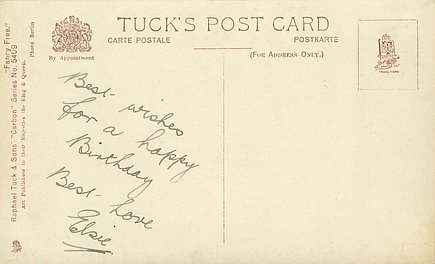 TUCK'S POST CARD
CARTE POSTALE
POSTKARTE
By Appointment
(FOR ADDRESS ONLY.)
TRADE MARK
Best wishes
for a happy
Birthday
Best love
Elsie.
"Fancy Free."
Photo Berlin
Raphael Tuck & Sons' "Carbon" Series No. 5409
Art Publishers to their Majesties the King & Queen.